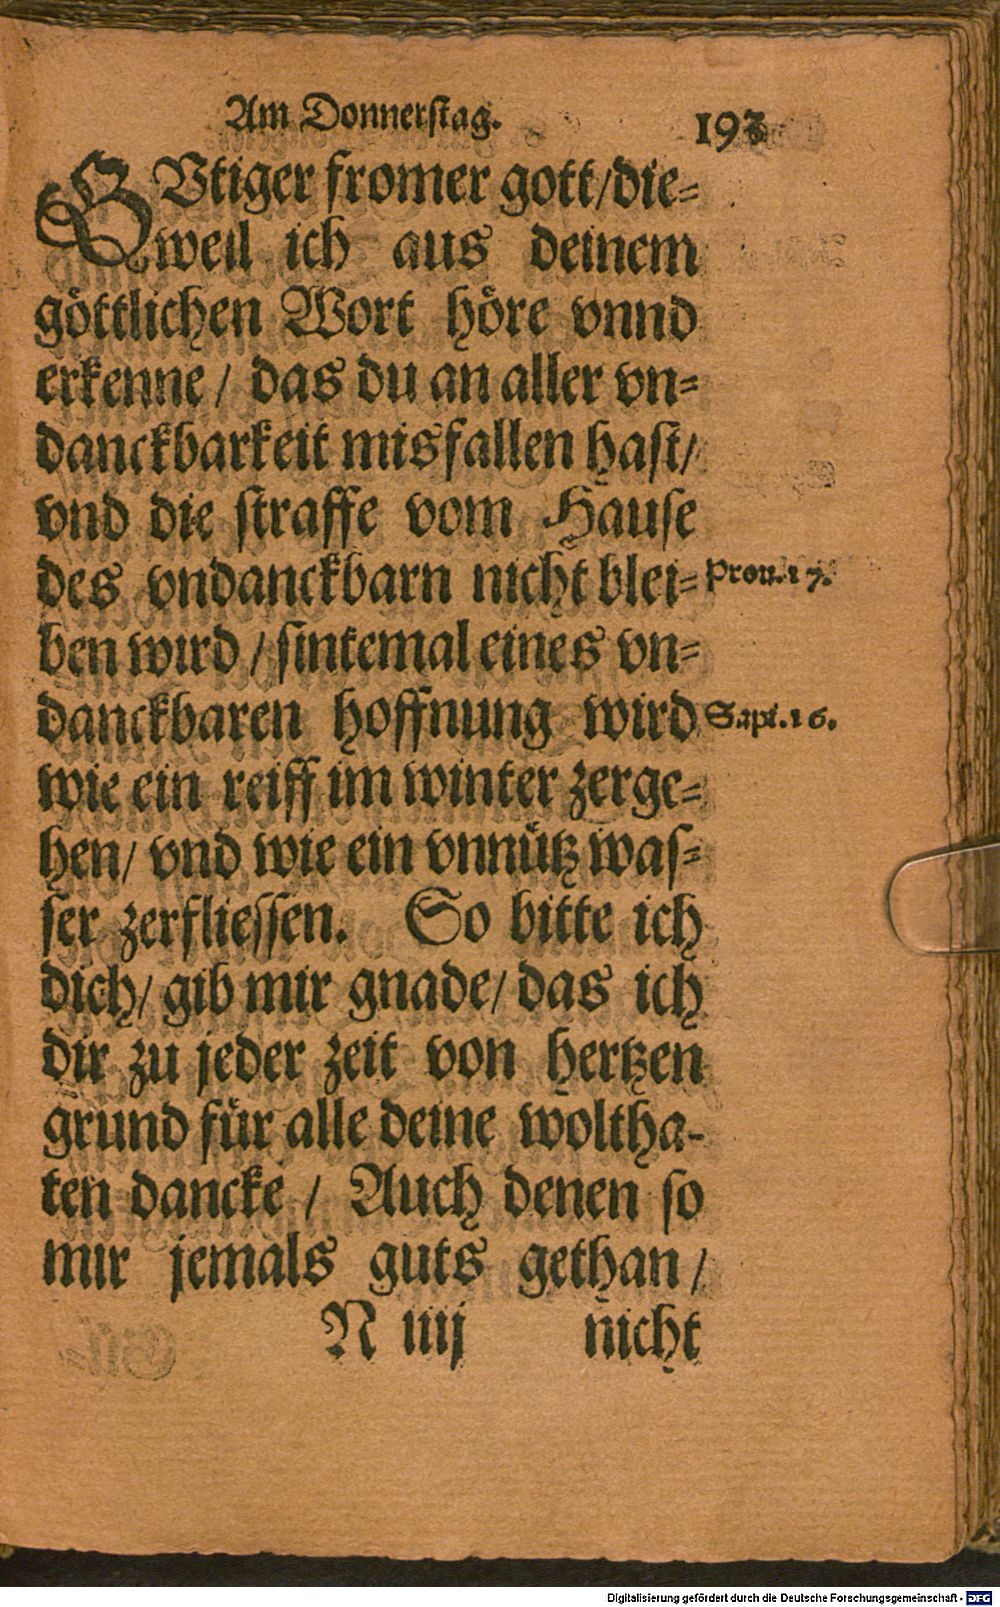 Am Donnerstag. 193
GVtiger fromer gott/die-
weil ich aus deinem
göttlichen Wort höre vnnd
erkenne / das du an aller vn-
danckbarkeit misfallen hast/
vnd die straffe vom Hause
des vndanckbarn nicht blei- Prou.17.
ben wird / sintemal eines vn-
danckbaren hoffnung wird Sapi.16.
wie ein reiff im winter zerge-
hen/ vnd wie ein vnnütz was-
ser zerfliessen. So bitte ich
dich/ gib mir gnade/ das ich
dir zu jeder zeit von hertzen
grund für alle deine woltha-
ten dancke / Auch denen so
mir jemals guts gethan /
N iiij nicht
Digitalisierung gefördert durch die Deutsche Forschungsgemeinschaft - DFG